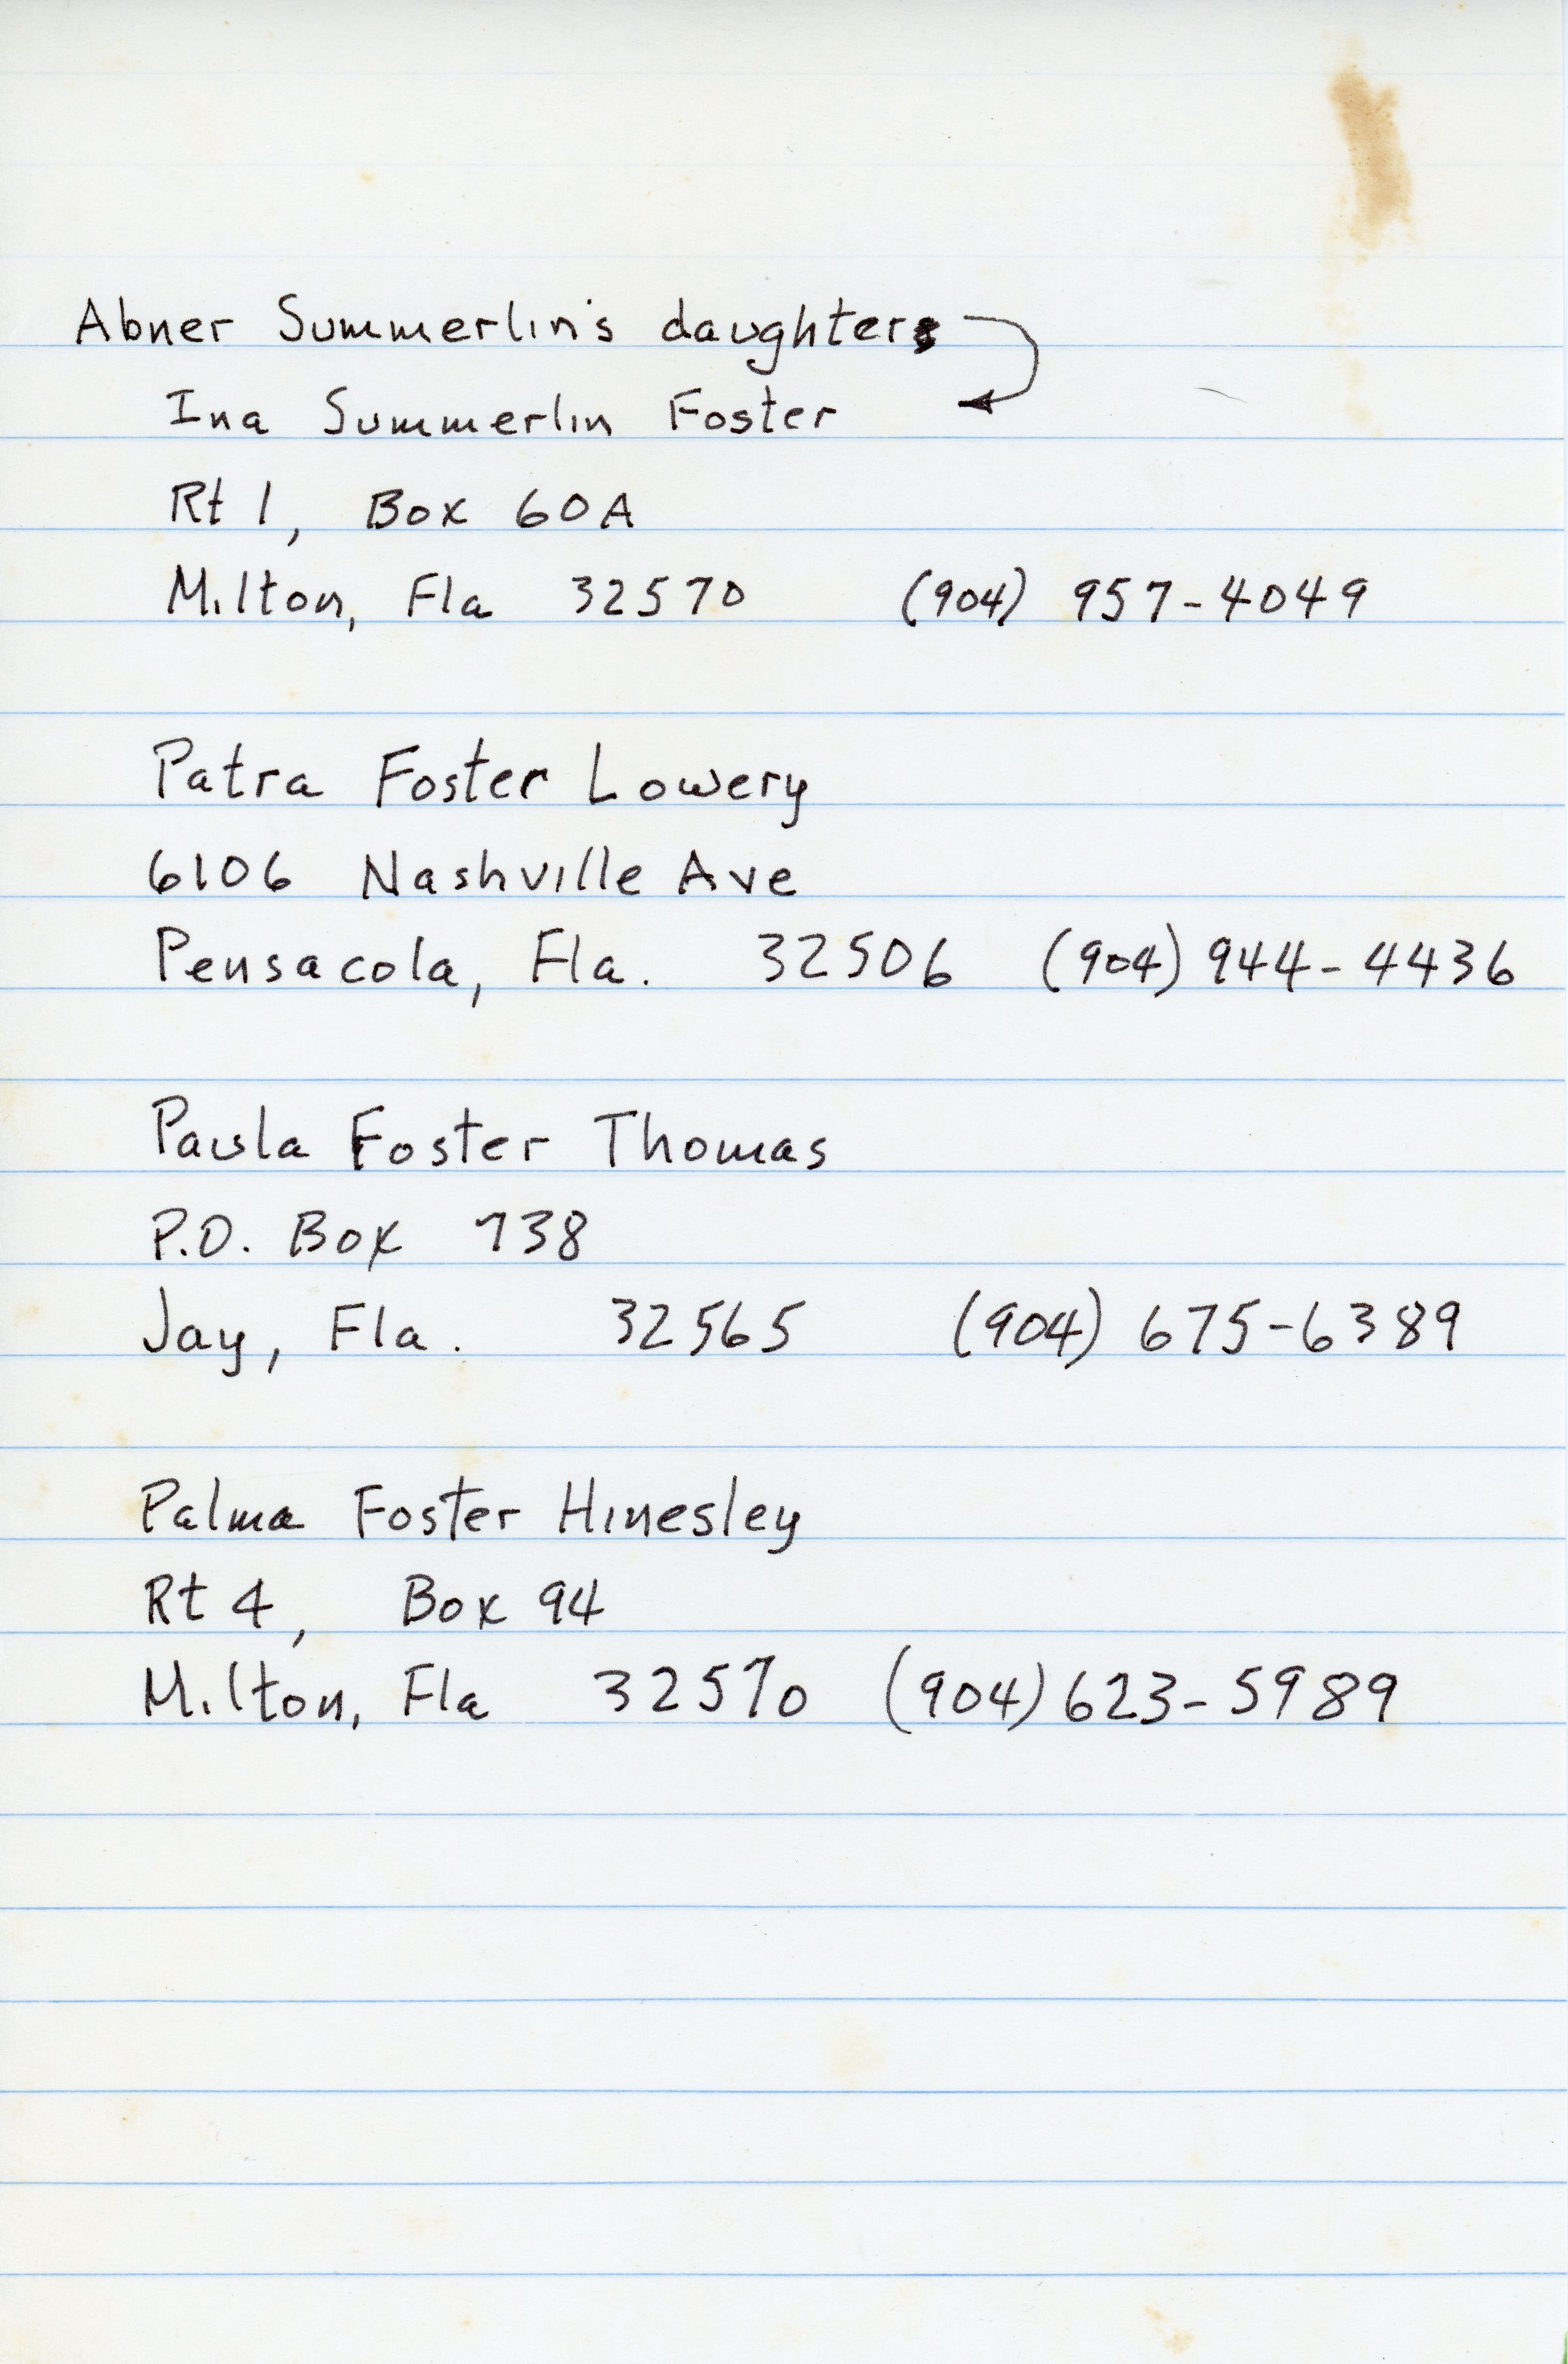 Abner Summerlin's daughters
Ina Summerlin Foster
Rt 1, Box 60A
Milton, Fla 32570 (904) 957-4049
Patra Foster Lowery
6106 Nashville Ave
Pensacola, Fla. 32506 (904) 944-4436
Paula Foster Thomas
P.O. Box 738
Jay, Fla. 32565 (904) 675-6389
Palma Foster Hinesley
Rt 4, Box 94
Milton, Fla 32570 (904) 623-5989